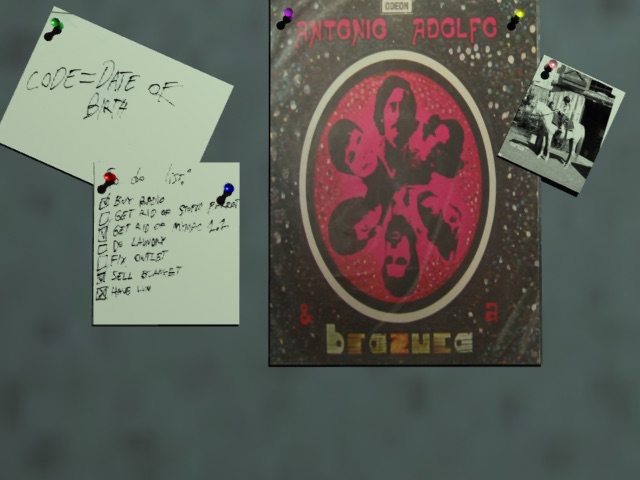 CODE = DATE OF
BIRTH
To do list:
BUY RADIO
GET RID OF STUPID FERRET
GET RID OF
DO LAUNDRY
FIX OUTLET
SELL BLANKET
HAVE
ODEON
ANTONIO ADOLFO
& a
brazuca